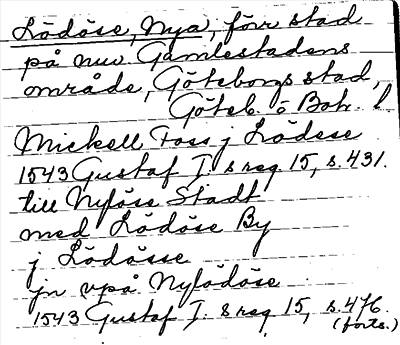 Lödöse, Nya, förr stad
på nuv. Gamlestadens
område, Göteborgs stad,
Göteb. o Boh. l
Mickell Foss j Lödese
1543 Gustaf I. s reg. 15, s. 431.
till Nylöse Stadt
med Lödöse By
j Lödösse
jn vpå Nylödöse
1543 Gustaf I. s reg 15, s. 476.
(forts.)